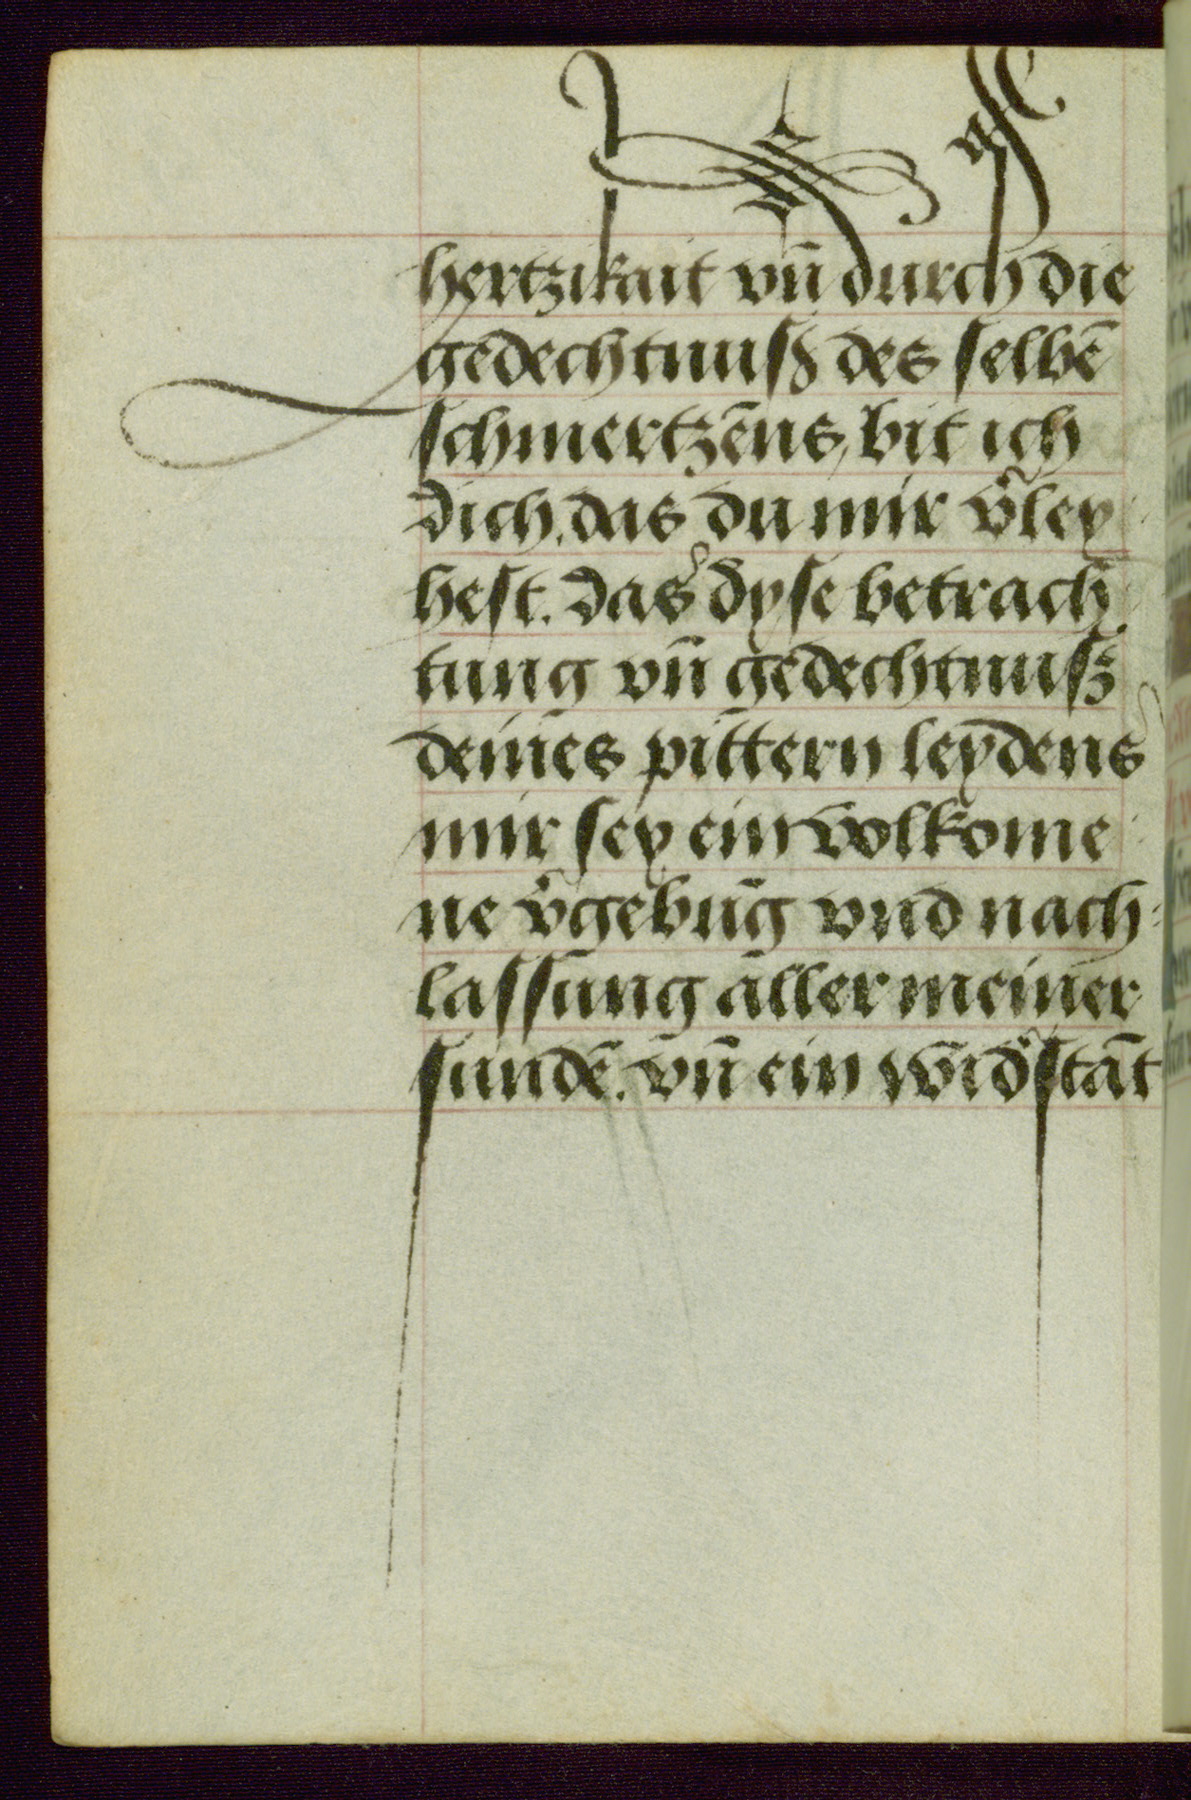 hertzikait vn̄ durch die
gedechtnusß des selbē
schmertzēns, bit ich
dich, das du mir v̾ley
hest. Das dyse betrach
tung vn̄ gedechtnusz
deines pittern leydens
mir sey ein volkome
ne v̾gebūg vnd nach-
lassung aller meiner
sundē. vn̄ ein wid̾stāt